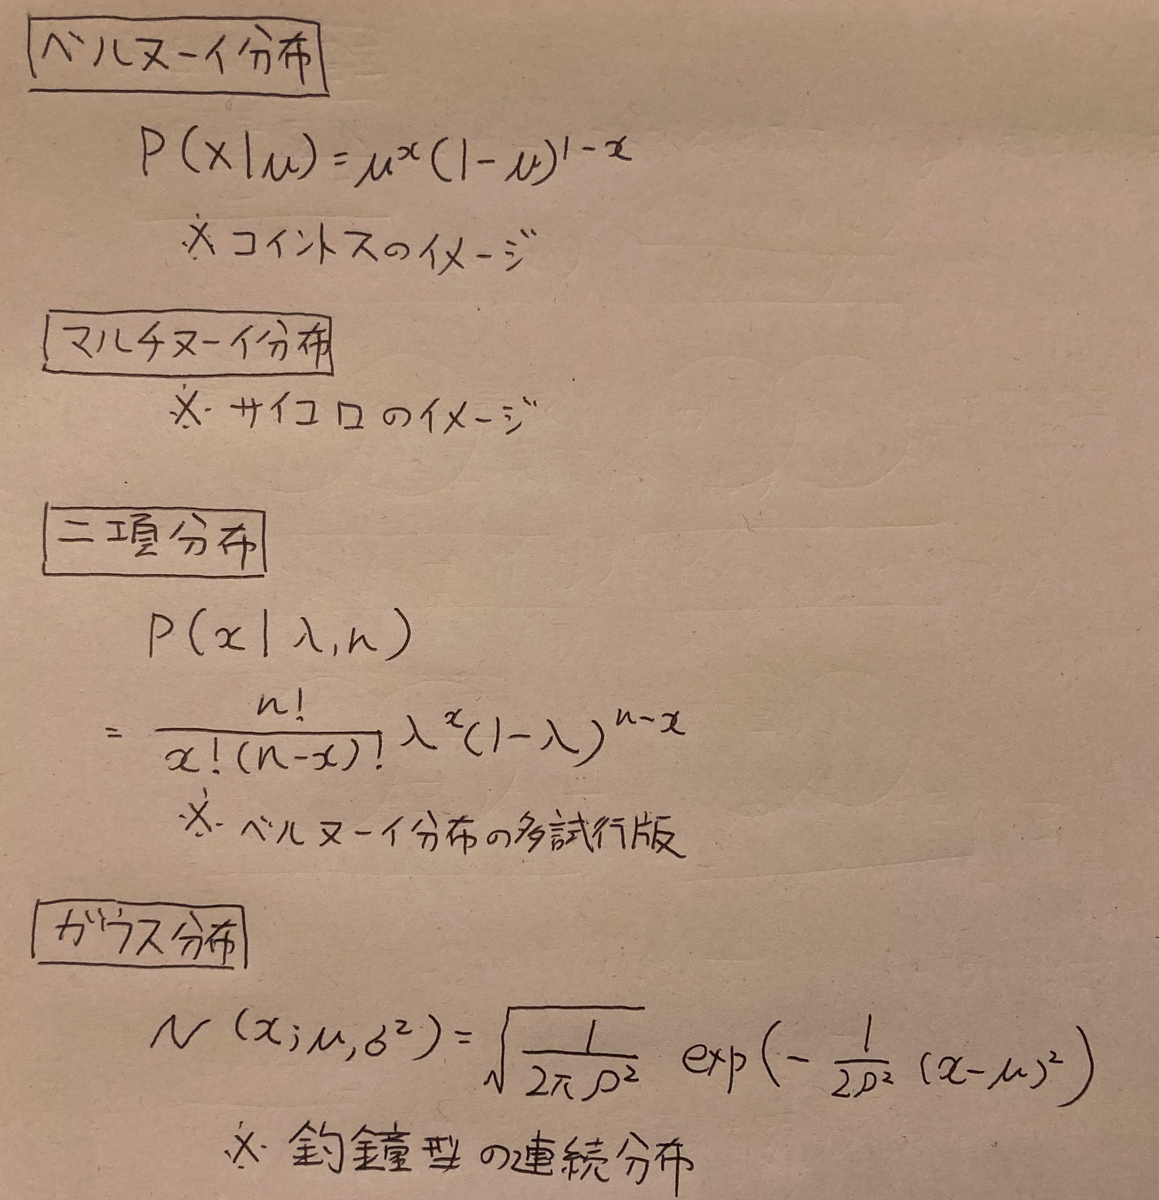 ベルヌーイ分布
P(x|μ)=μ^x(1-μ)^{1-x}
※コイントスのイメージ
マルチヌーイ分布
※サイコロのイメージ
二項分布
P(x|λ,n)
= \frac{n!}{x!(n-x)!} λ^x(1-λ)^{n-x}
※ベルヌーイ分布の多試行版
ガウス分布
N(x;μ,σ^2)=\sqrt{\frac{1}{2πρ^2}} exp(-\frac{1}{2ρ^2}(x-μ)^2)
※釣鐘型の連続分布